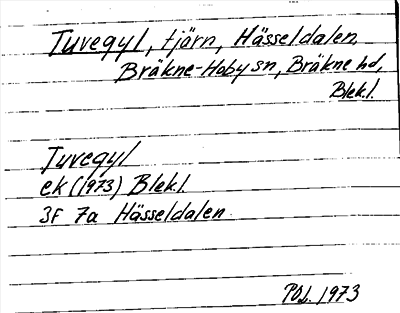 Tuvegyl, tjärn, Hässeldalen,
Bräkne-Hoby sn, Bräkne hd,
Blek.l.
Tuvegyl
ek (1973) Blekl.
3F 7a Hässeldalen
POL. 1973